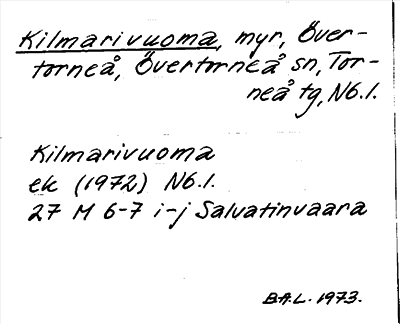 Kilmarivuoma, myr, Över-
torneå, Övertorneå sn, Tor-
neå tg, Nб.l.
Kilmarivuoma
ek (1972) Nб.l.
27 M 6-7 i-j Salvatinvaara
B.A.L. 1973.